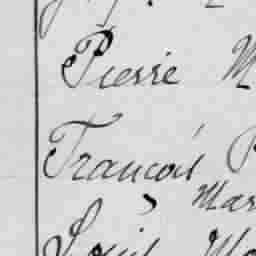 Pierre M
François
Mar
Louis Ma